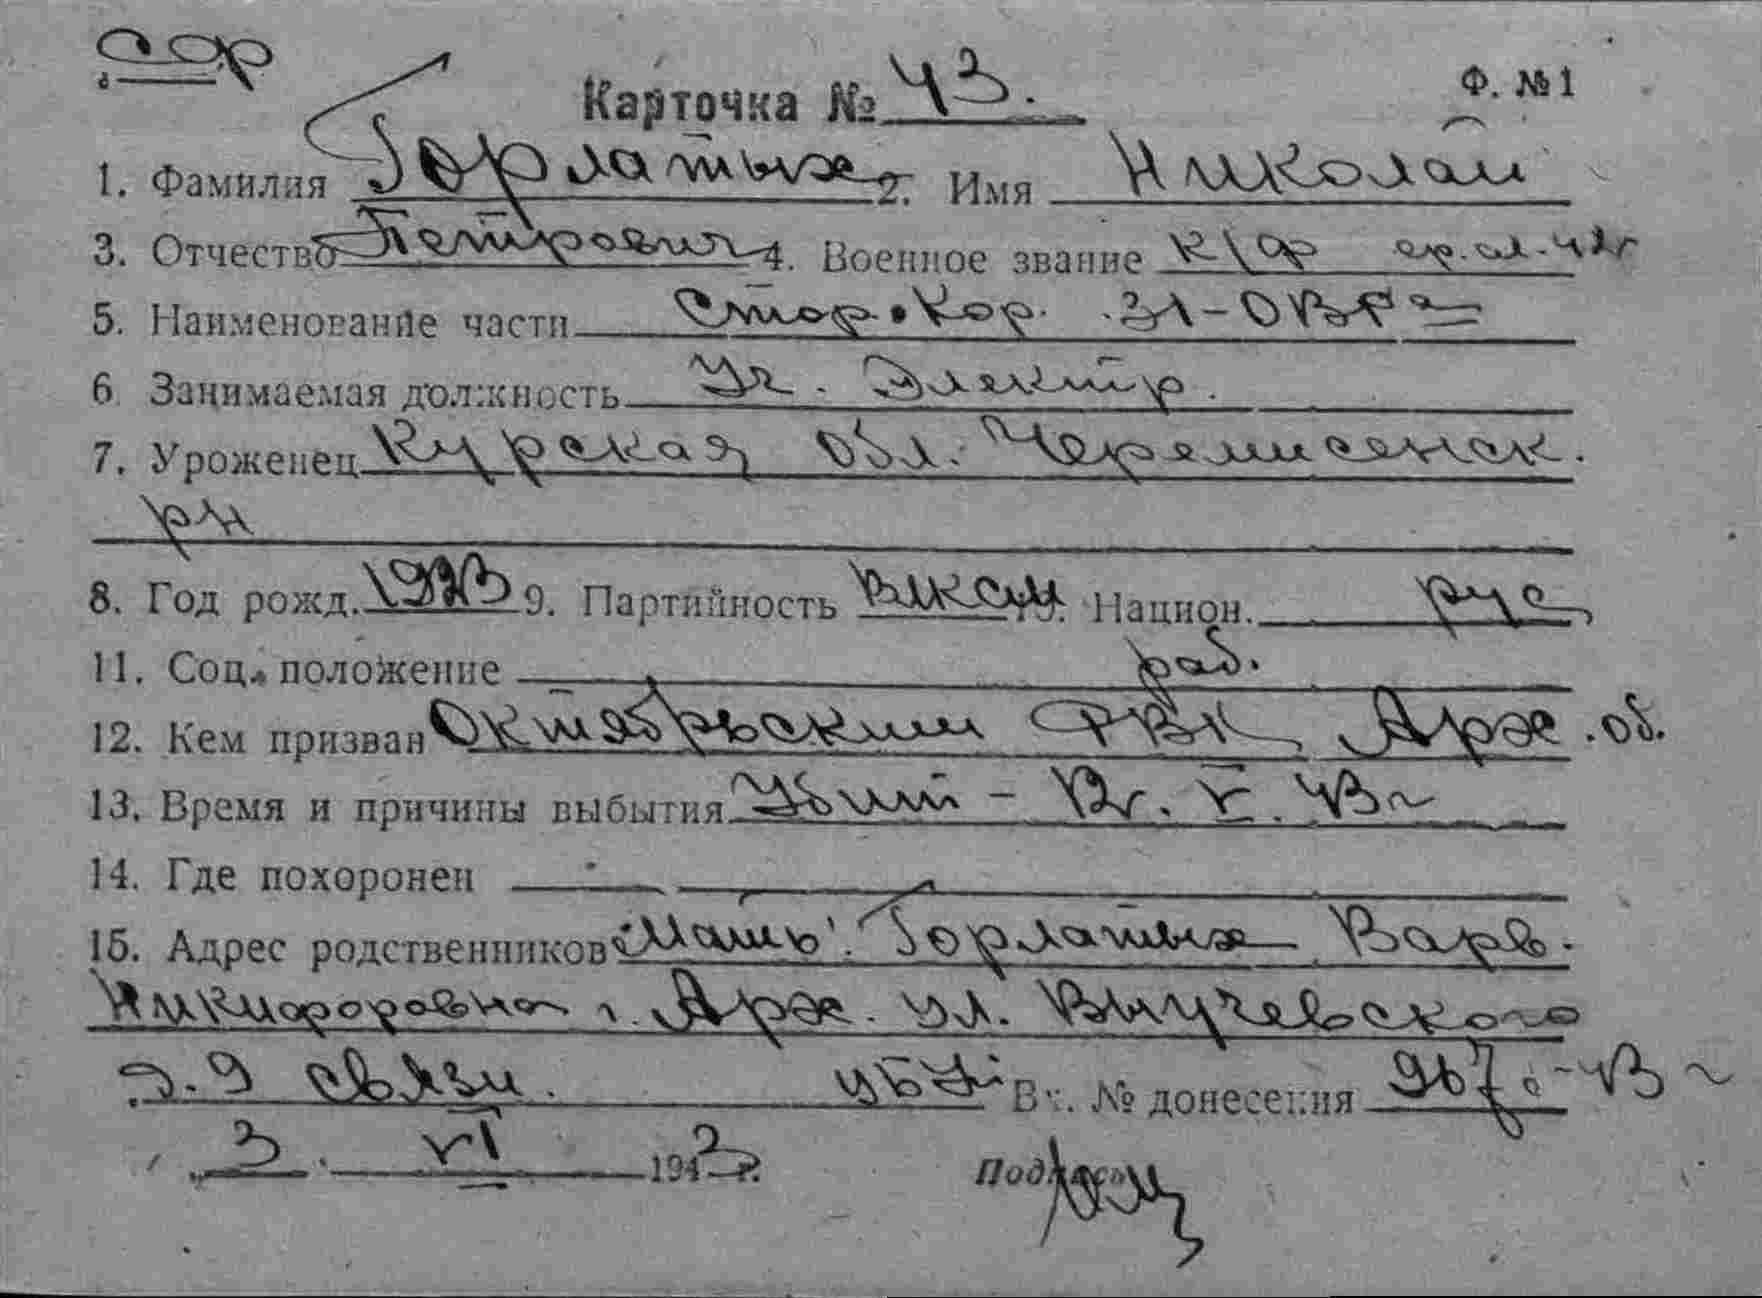 СФ
Карточка № 43. Ф. №1
1. Фамилия Горлатых 2. Имя Николай
3. Отчество Петрович 4. Военное звание к/ф ср. сл. 42г
5. Наименование части Стор. Кор. 31-ОВРа
6 Занимаемая должность Уч. Электр.
7. Уроженец Курская обл. Черемисенск.
рн
8. Год рожд. 1923 9. Партийность ВЛКСМ 10. Национ. рус
11. Соц. положение раб.
12. Кем призван Октябрьским РВК Арх. об.
13. Время и причины выбытия Убит - 12. V. 43г
14. Где похоронен
15. Адрес родственников Мать: Горлатых Варв.
Никифоровна г. Арх. ул. Выучевского
д. 9 связи. Вх. № донесения 967с-43г
3 VI 1943г.